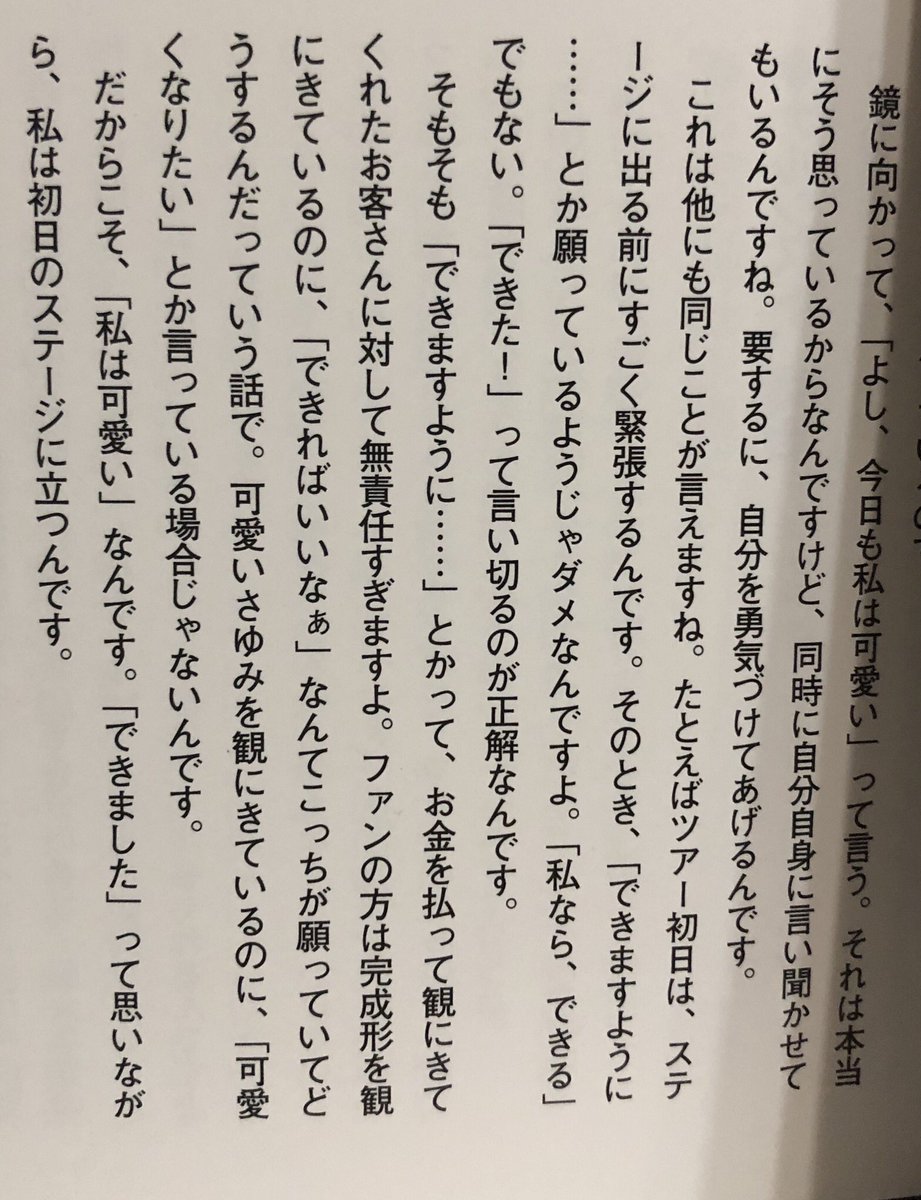 鏡に向かって、「よし、今日も私は可愛い」って言う。それは本当
にそう思っているからなんですけど、同時に自分自身に言い聞かせて
もいるんですね。要するに、自分を勇気づけてあげるんです。
これは他にも同じことが言えますね。たとえばツアー初日は、ステ
ージに出る前にすごく緊張するんです。そのとき、「できますように
……」とか願っているようじゃダメなんですよ。「私なら、できる」
でもない。「できた！」って言い切るのが正解なんです。
そもそも「できますように……」とかって、お金を払って観にきて
くれたお客さんに対して無責任すぎますよ。ファンの方は完成形を観
にきているのに、「できればいいなぁ」なんてこっちが願っていてど
うするんだっていう話で。可愛いさゆみを観にきているのに、「可愛
くなりたい」とか言っている場合じゃないんです。
だからこそ、「私は可愛い」なんです。「できました」って思いなが
ら、私は初日のステージに立つんです。